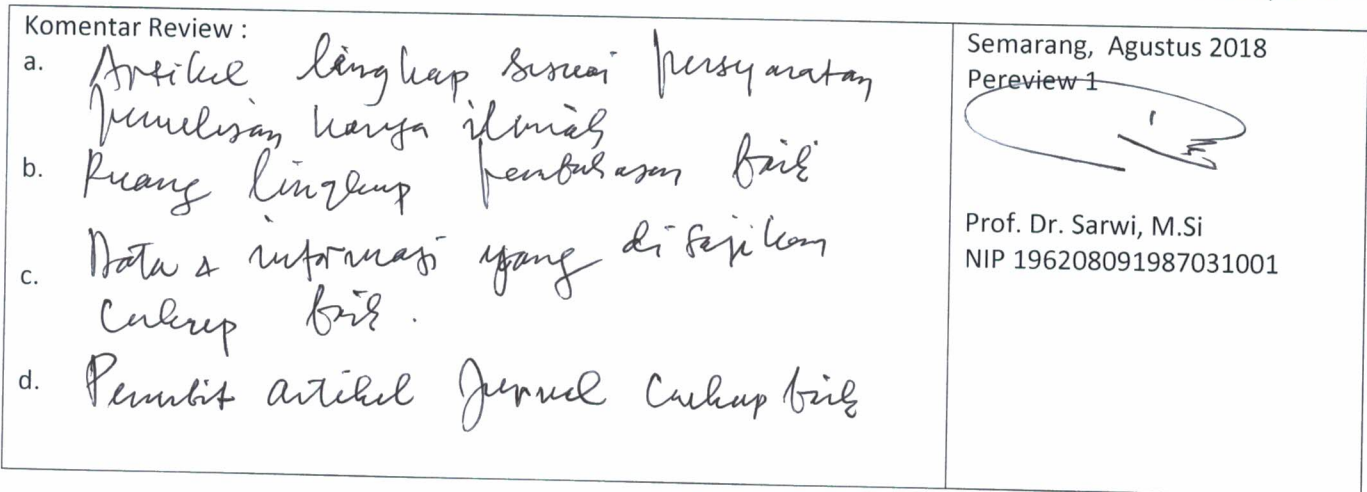 Komentar Review :
a. Artikel lengkap sesuai persyaratan
penulisan karya ilmiah
b. Ruang lingkup pembahasan baik
c. Data & informasi yang disajikan
cukup baik.
d. Penerbit artikel Jurnal cukup baik
Semarang, Agustus 2018
Pereview 1
Prof. Dr. Sarwi, M.Si
NIP 196208091987031001